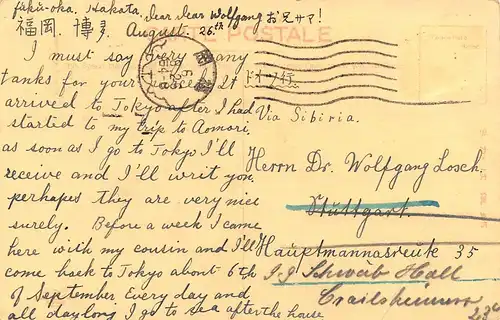 Fuku-oka. Hakata. Dear dear Wolfgang お兄サマ!
福岡 博多 August. 26th
CARTE POSTALE
I must say very many
tanks for your It
arrived to Tokyo after I had
started to my trip to Aomori,
as soon as I go to Tokyo I'll
receive and I'll writ you.
perhapes they are very nice
surely. Before a week I came
here with my cousin and I'll
come back to Tokyo about 6th
of September. Every day and
all day long I go to sea after the house
ドイツ行
Via Sibiria.
Herrn Dr. Wolfgang Losch.
Stuttgart.
35
z.Z. Schwäb Hall
Crailsheimerstr
23